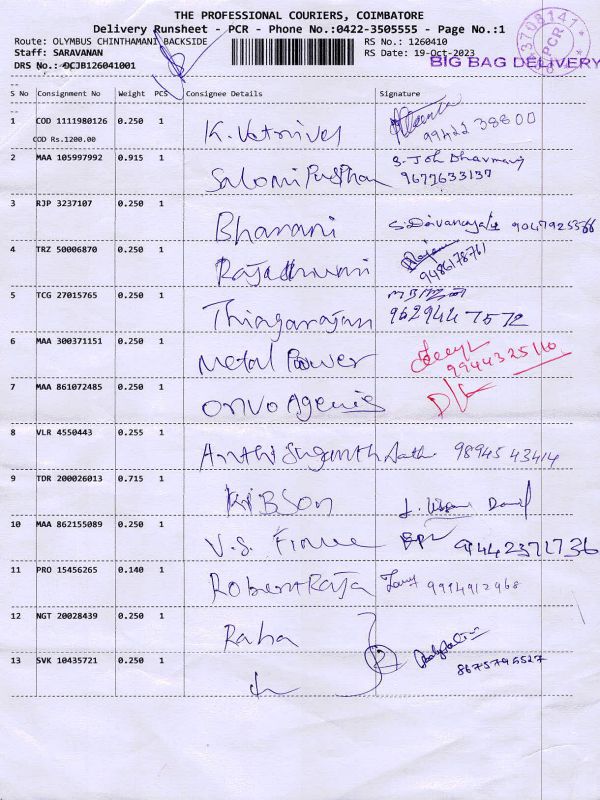 THE PROFESSIONAL COURIERS, COIMBATORE
Delivery Runsheet - PCR - Phone No.:0422-3505555 - Page No.:1
Route: OLYMBUS CHINTHAMANI BACKSIDE
RS No.: 1260410
Staff: SARAVANAN
RS Date: 19-Oct-2023
DRS No.: DCJB126041001
BIG BAG DELIVERY
3708141
PCR
S No Consignment No Weight PCS Consignee Details Signature
1 COD 1111980126 0.250 1 K. Vetrivel
99422 38800
COD Rs.1200.00
2 MAA 105997992 0.915 1 Salomi Pushpa
9677633137
3 RJP 3237107 0.250 1 Bharani 9047925566
4 TRZ 50006870 0.250 1 Rajadhurai
9486178761
5 TCG 27015765 0.250 1 Thiagarajan
9629447572
6 MAA 300371151 0.250 1 Metal Power
9944325110
7 MAA 861072485 0.250 1 Onvo Agencis
8 VLR 4550443 0.255 1 98945 43414
9 TDR 200026013 0.715 1 KIBSON
10 MAA 862155089 0.250 1 V.S. 9442371736
11 PRO 15456265 0.140 1 Robert Raja 9994912968
12 NGT 20028439 0.250 1 Raha
13 SVK 10435721 0.250 1
8675795527